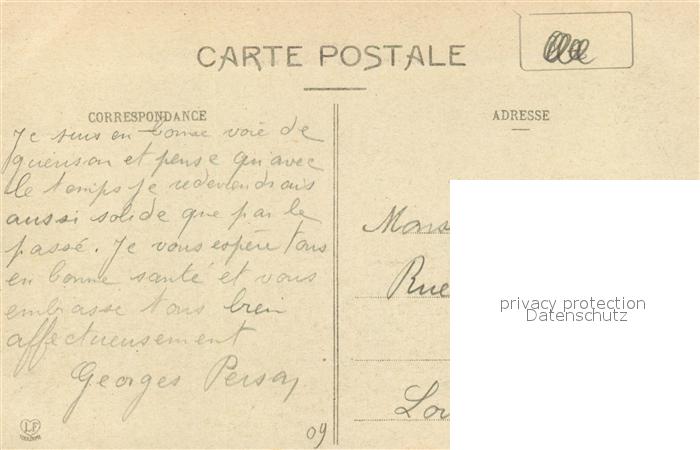 CARTE POSTALE
CORRESPONDANCE
ADRESSE
Je suis en bonne voie de
guérison et pense qu'avec
le temps je redeviendrais
aussi solide que par le
passé. Je vous espère tous
en bonne santé et vous
embrasse tous bien
affectueusement
Georges
Mons
Rue
Lou
privacy protection
Datenschutz
LF
09